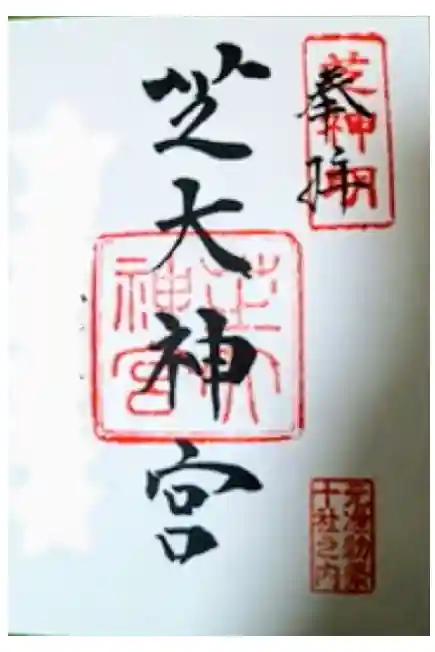 奉拝
芝神明
芝大神宮
芝大
神宮
元准勅祭
十社之内